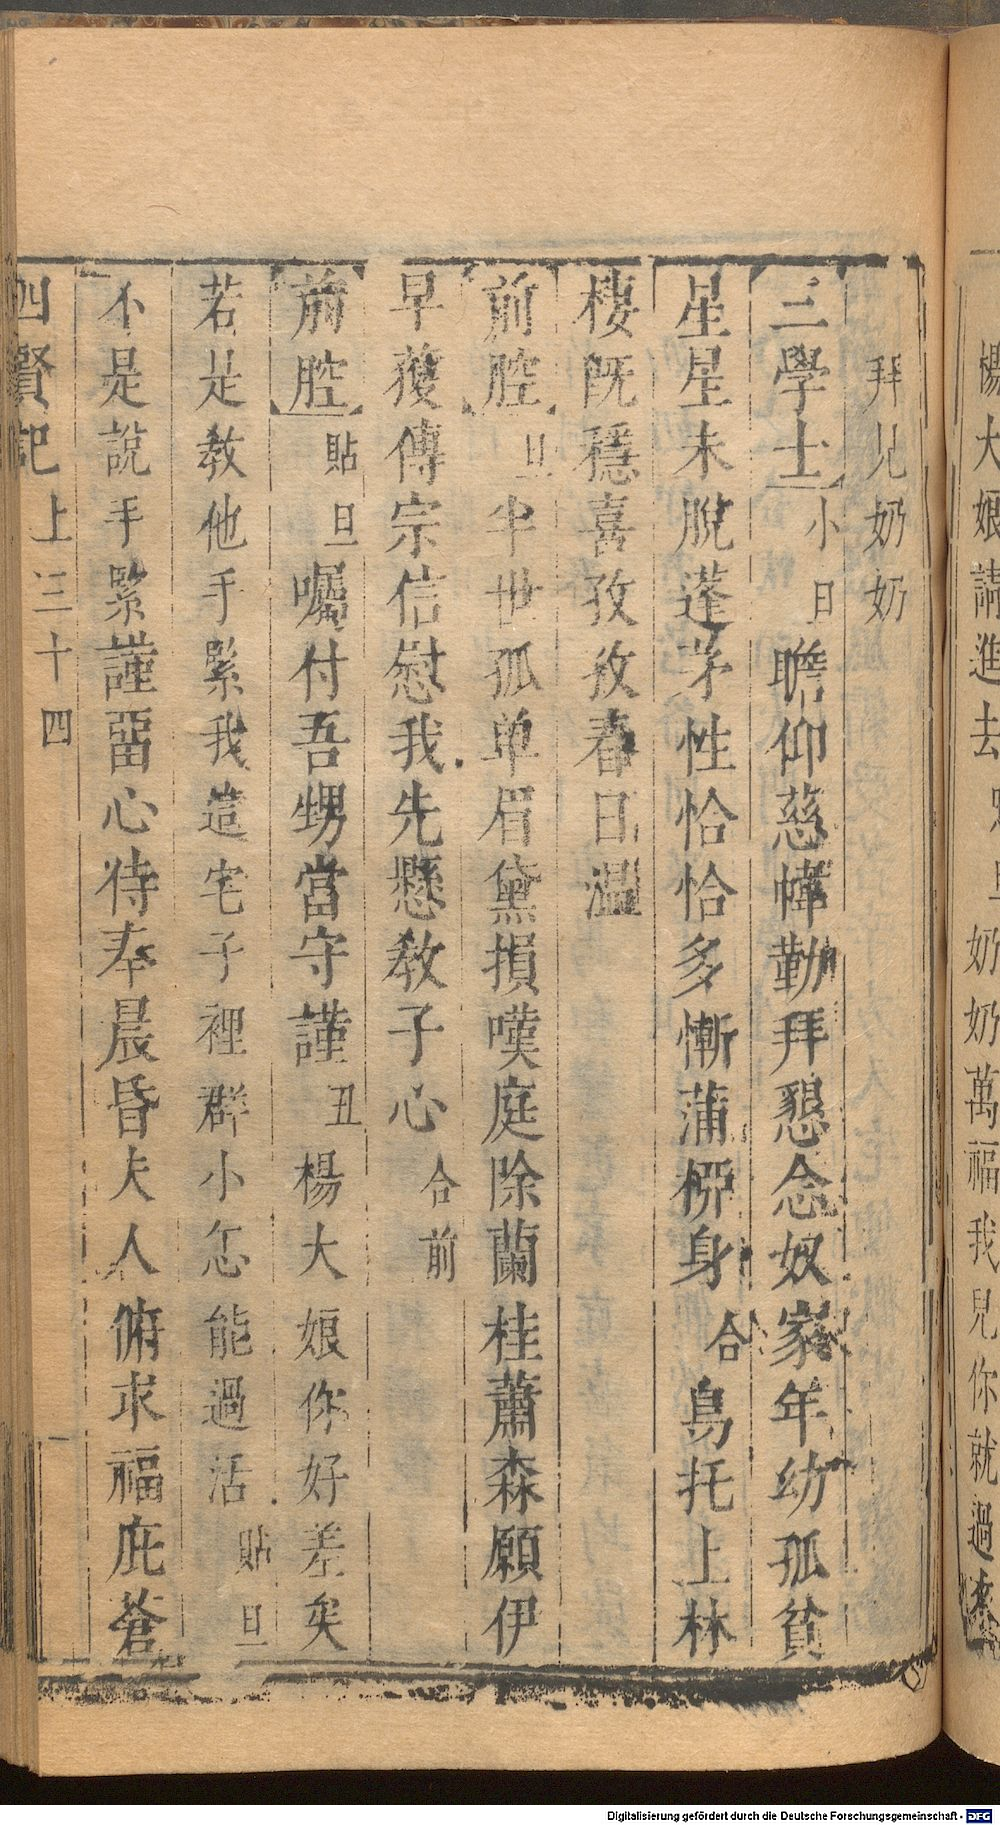 楊大娘請進去
奶奶萬福我兒你就過來
拜見奶奶
三學士小旦瞻仰慈幃勤拜懇念奴家年幼孤貧
星星未脫蓬茅性恰恰多慚蒲柳身合鳥托上林
棲既穩喜孜孜春日温
前腔旦半世孤单眉黛損嘆庭除蘭桂蕭森願伊
早獲傳宗信慰我先懸教子心合前
前腔貼旦囑付吾甥當守謹丑楊大娘你好差矣
若是教他手緊我這宅子裡群小怎能過活貼旦
不是說手緊謹畱心待奉晨昏夫人俯求福庇蒼
四賢記上三十四
Digitalisierung gefördert durch die Deutsche Forschungsgemeinschaft - DFG